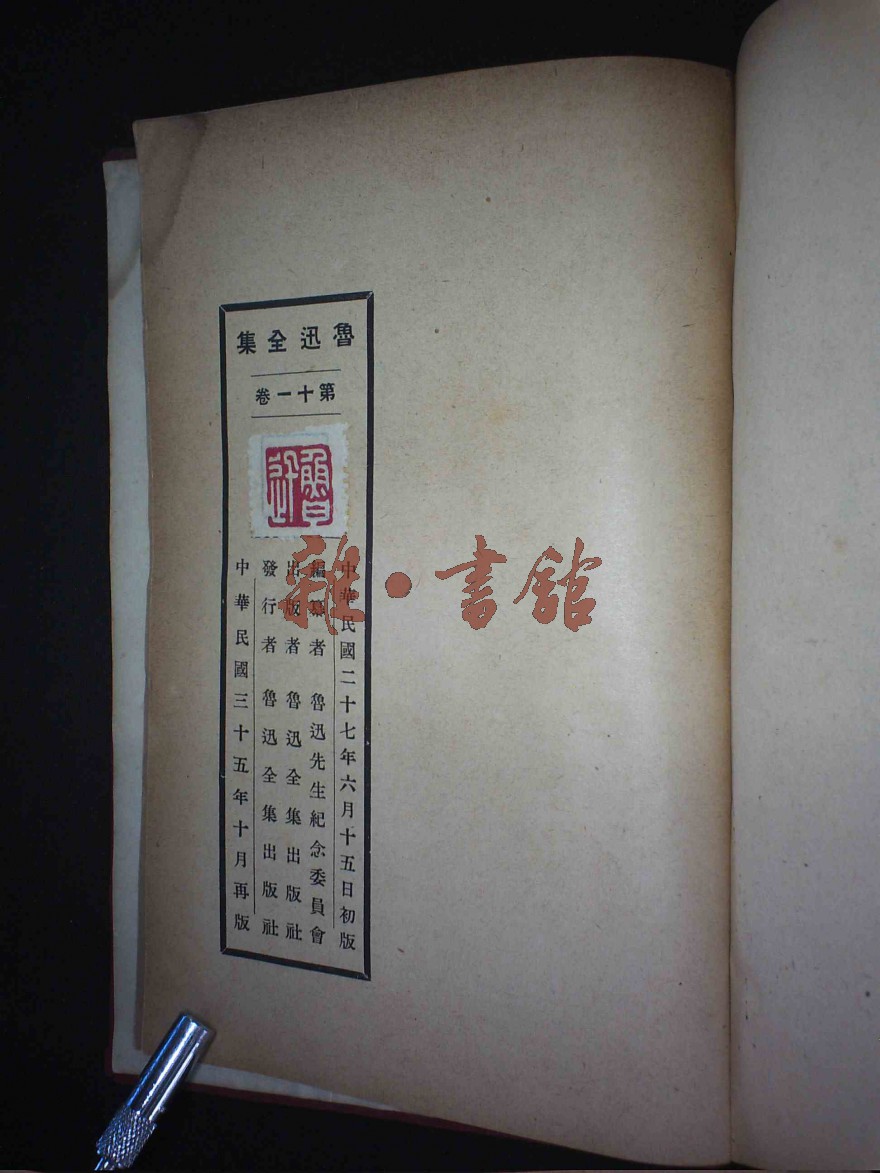 魯迅全集
第十一卷
魯迅
中華民國二十七年六月十五日初版
編纂者 魯迅先生紀念委員會
出版者 魯迅全集出版社
發行者 魯迅全集出版社
中華民國三十五年十月再版
雜·書館